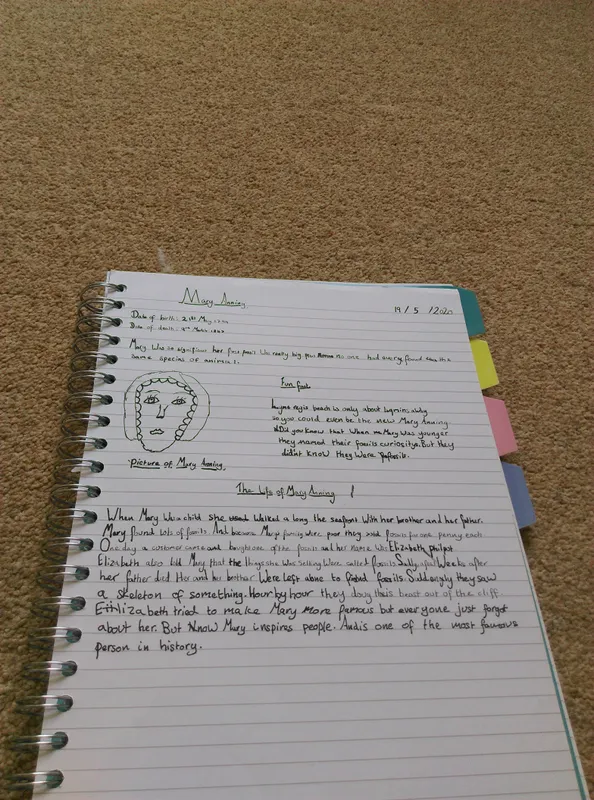 Mary Anning
19/5/2020
Date of birth: 21st May
Date of death: 9th March
Mary was so significant her first fossil was really big, plus no one had every found the
same species of animals.
Fun fact
Lyme regis beach is only about away
so you could even be the new Mary Anning.
Did you know that when Mary was younger
they named their fossils curiositys. But they
didn't know they were
picture of Mary Anning.
The Life of Mary Anning
When Mary was child she used walked a long the seafront with her brother and her father.
Mary found lots of fossils. And because Marys family were poor they sold fossils for one penny each
One day a customer came and bought one of the fossils and her name was Elizabeth philpot
Elizabeth also told Mary that the things she was selling were called fossils Sadly after Weeks after
her father died Her and her brother Were left alone to fined fossils. Suddengly they saw
a skeleton of something. Hour by hour they doug this beast out of the cliff
Elizabeth tried to make Mary more famous but everyone just forgot
about her. But Know Mary inspires people. And is one of the most famous
person in history.